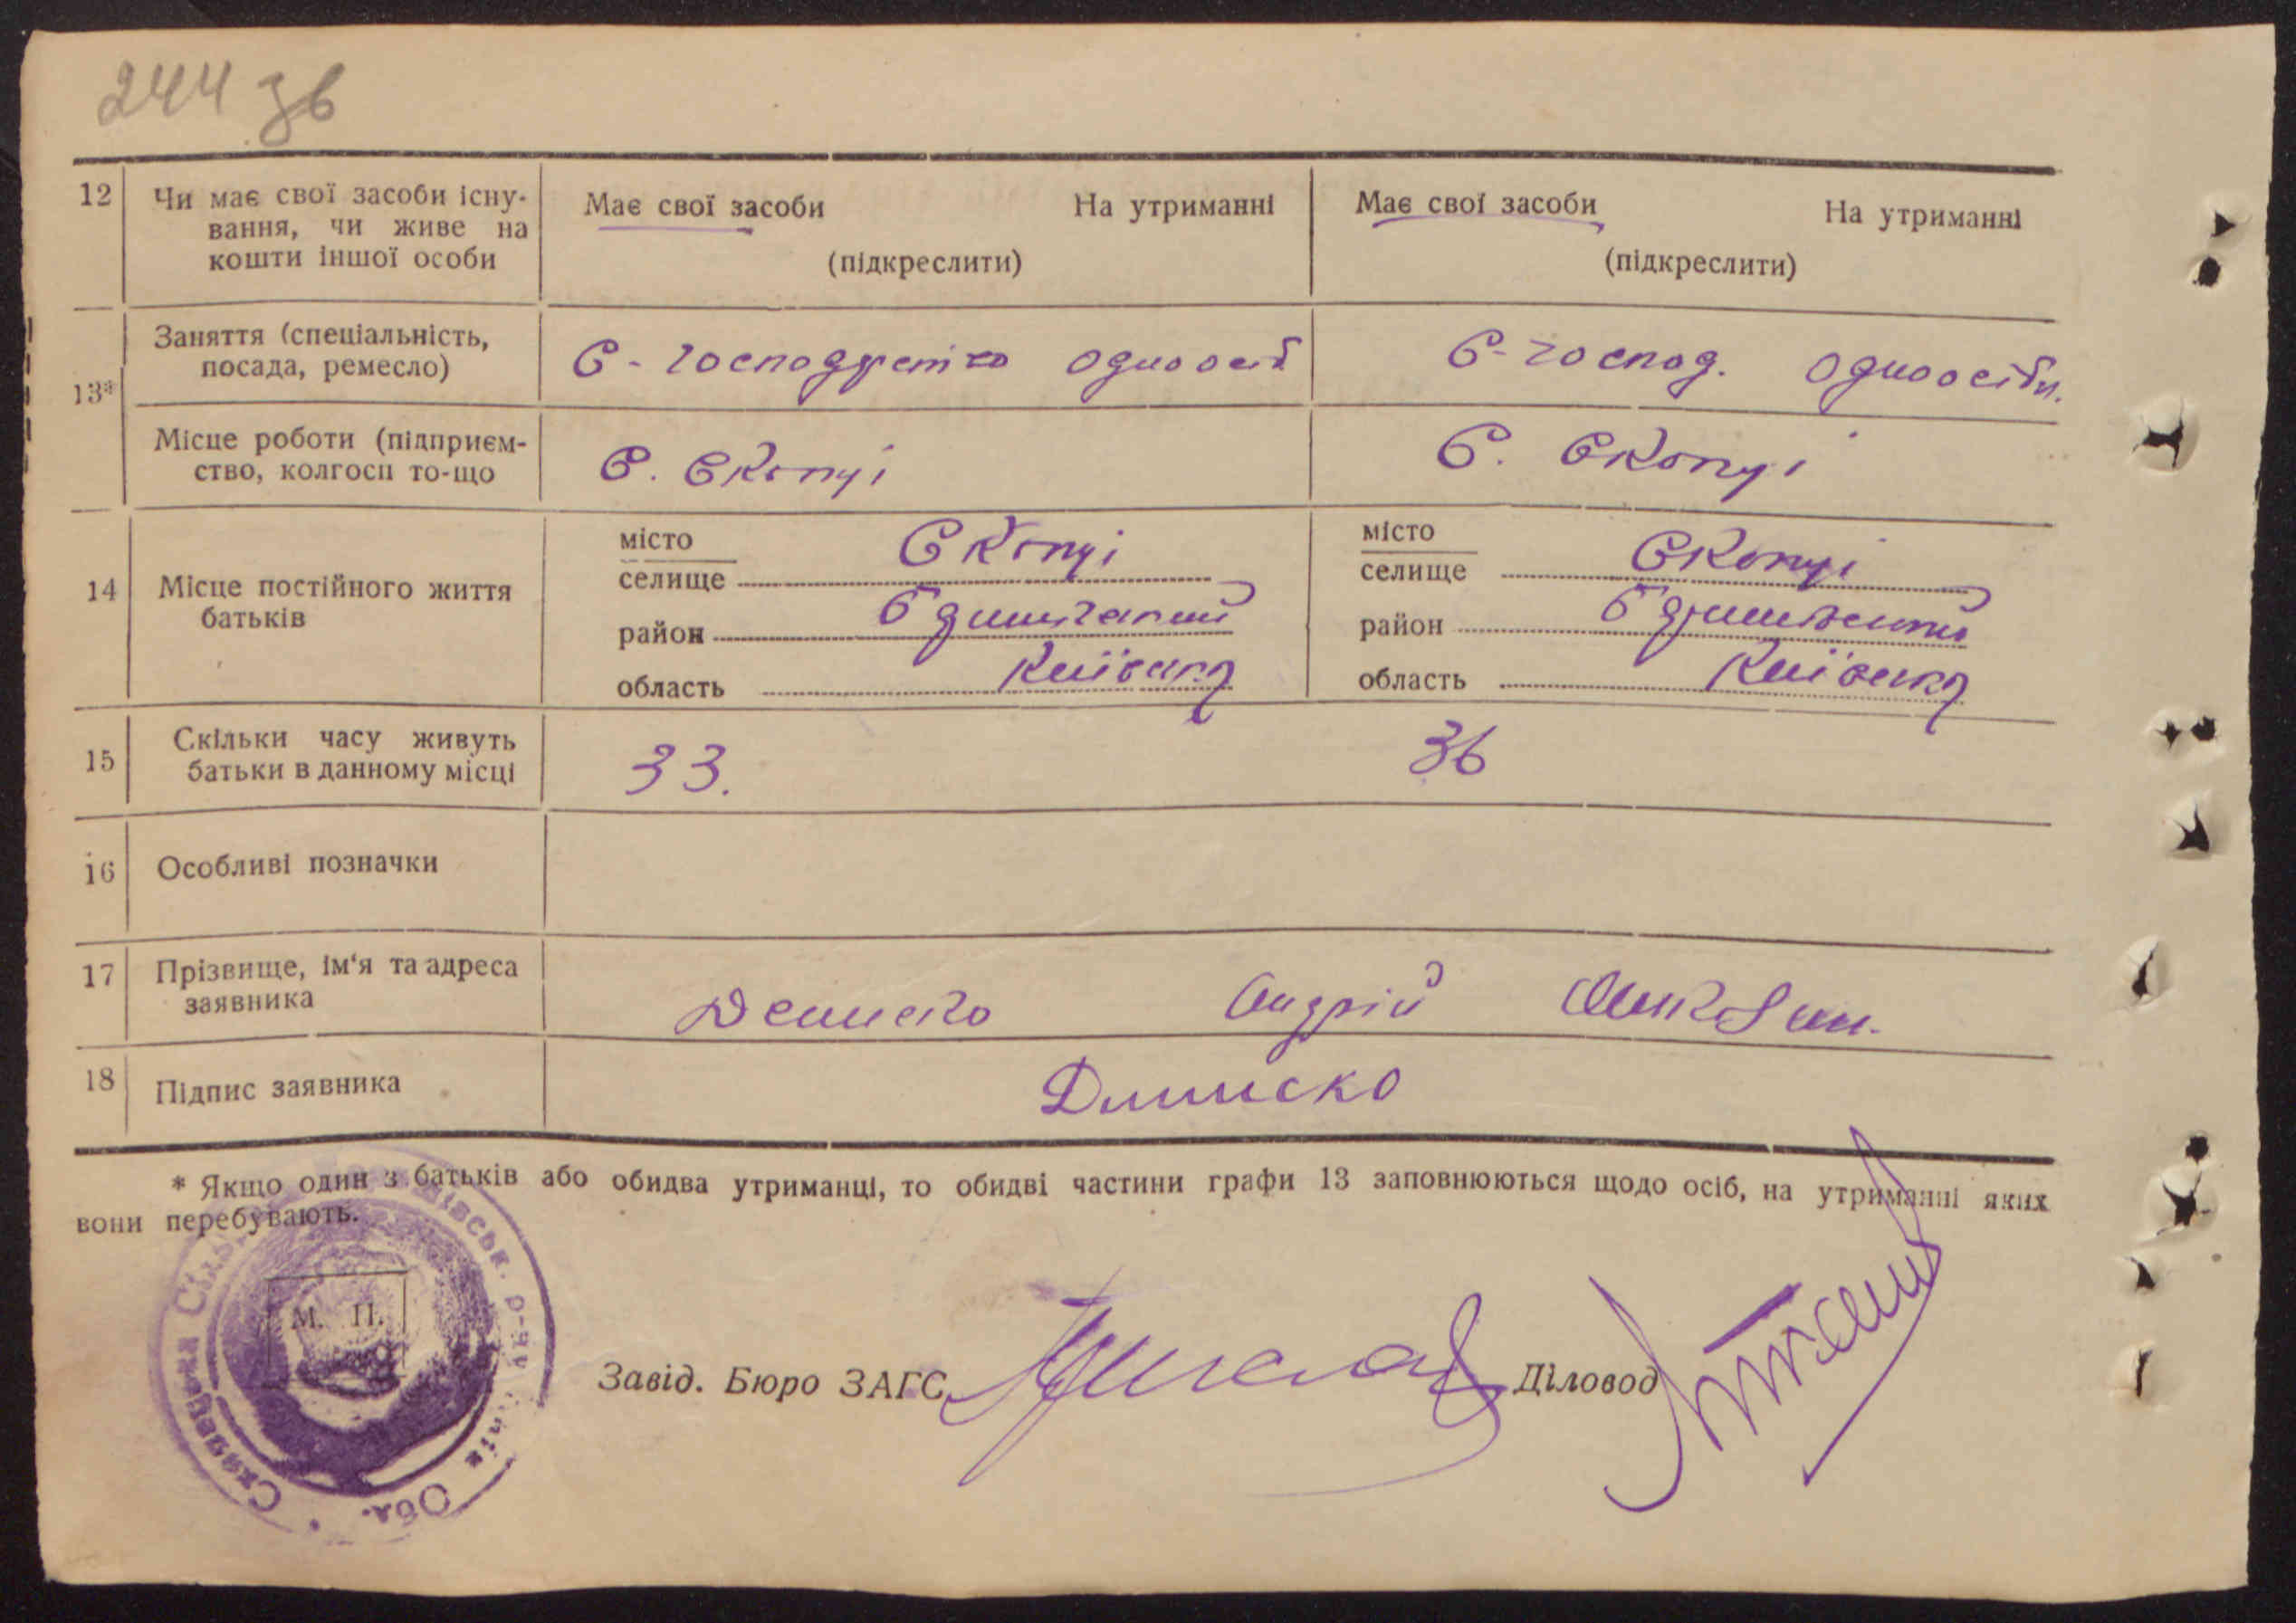 244 зв
12 Чи має свої засоби існу-
вання, чи живе на
кошти іншої особи
Має свої засоби На утриманні
(підкреслити)
Має свої засоби На утриманні
(підкреслити)
13*
Заняття (спеціальність,
посада, ремесло)
С-господрство одноосіб
С-госпад. одноосібн.
Місце роботи (підприєм-
ство, колгосп то-що
С. Скопці
С. Скопці
14 Місце постійного життя
батьків
місто
селище Скопці
район
область Київська
місто
селище Скопці
район
область Київська
15 Скільки часу живуть
батьки в данному місці
33.
36
16 Особливі позначки
17 Прізвище, ім'я та адреса
заявника
Дениско Андрій
18 Підпис заявника
Дениско
* Якщо один з батьків або обидва утриманці, то обидві частини графи 13 заповнюються щодо осіб, на утриманні яких
вони перебувають.
М. П.
Завід. Бюро ЗАГС
Діловод